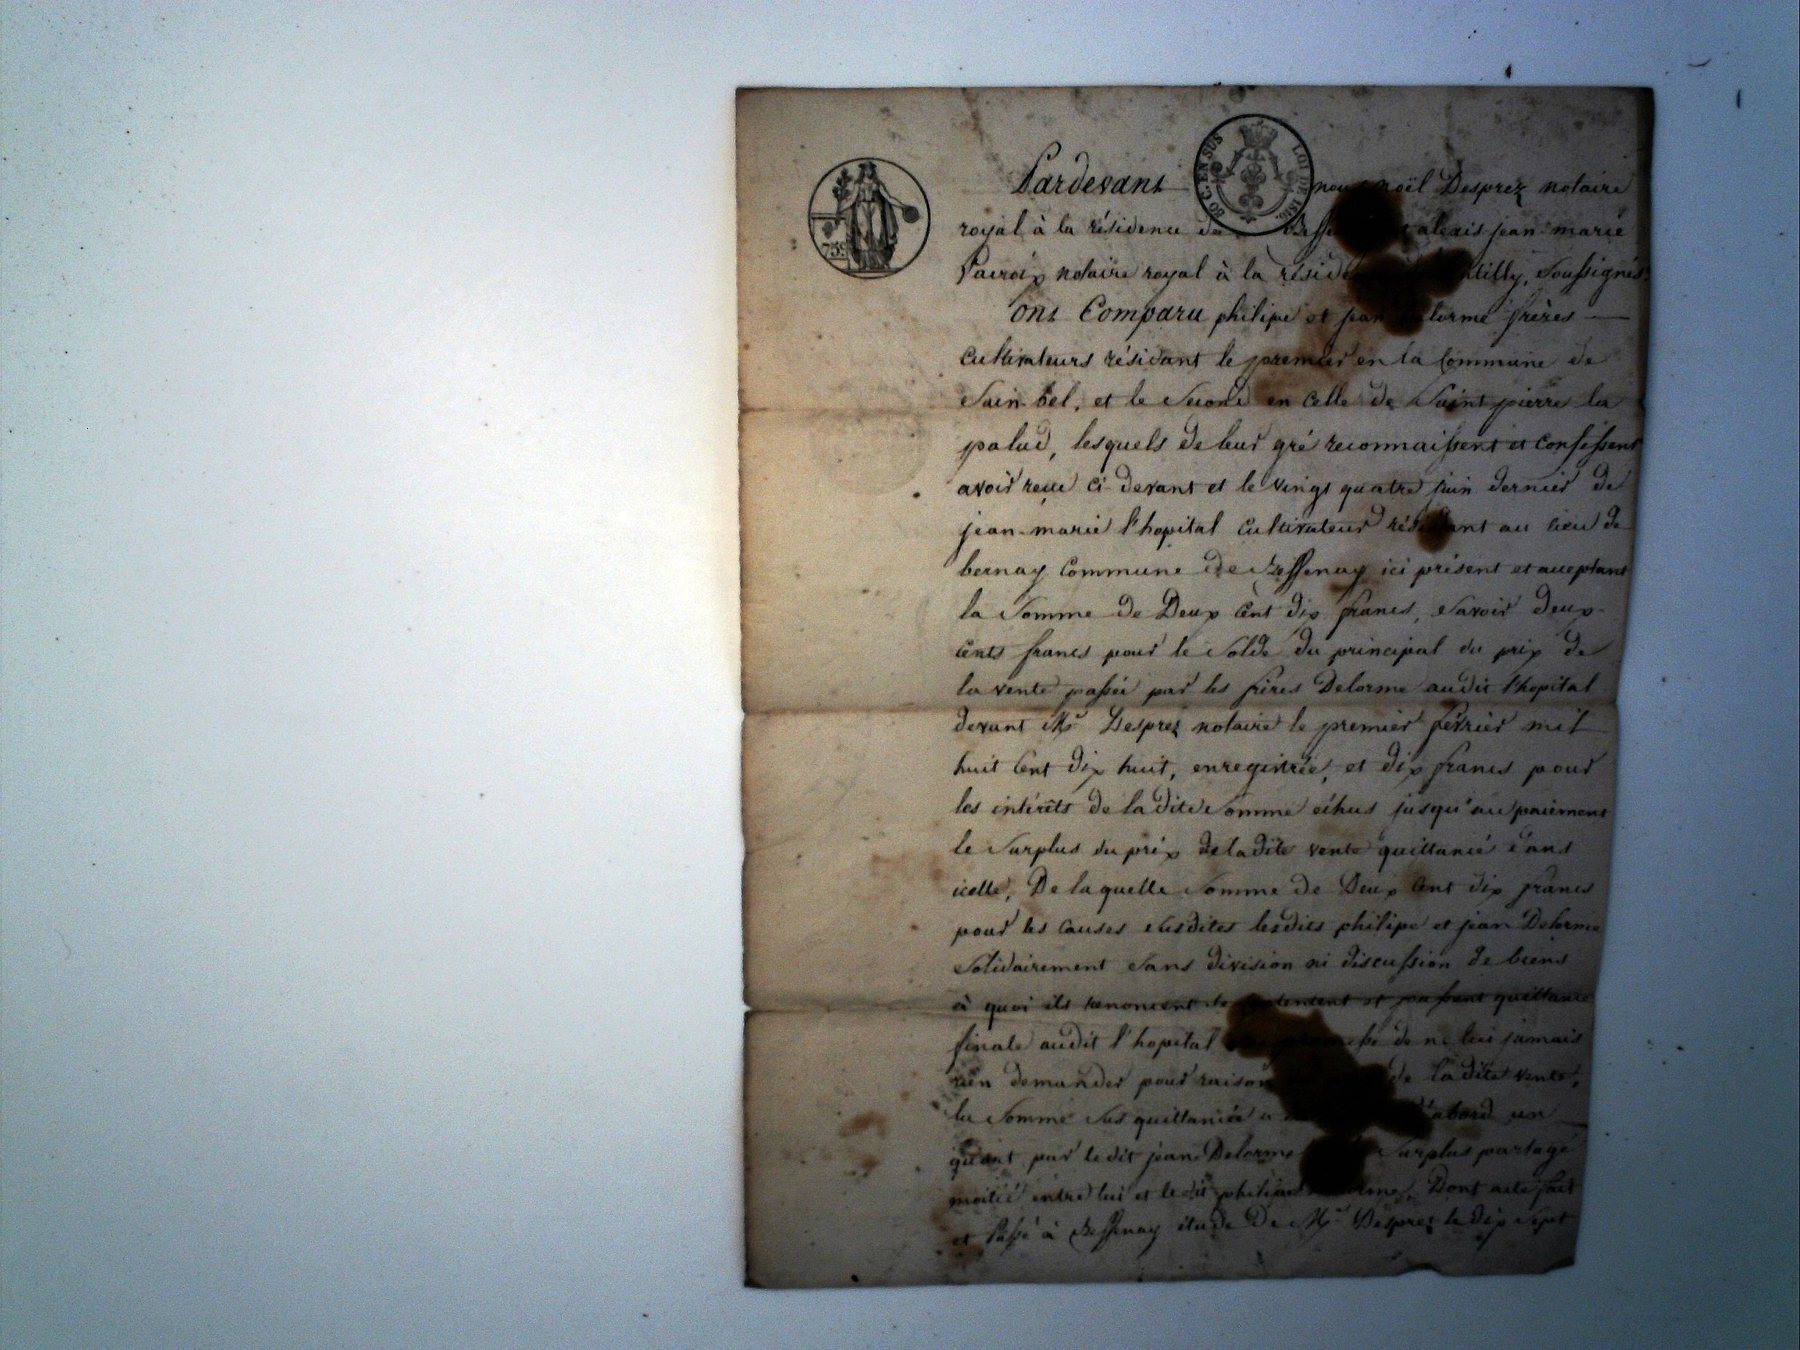 75 c.
80 C. EN SUS LOI DE 1816.
Pardevant nous noël Desprez notaire
royal à la résidence de Bessenay et alexis jean-marie
notaire royal à la résidence tilly, soussignés
ont Comparu philipe et jean Delorme frères
Cultivateurs résidant le premier en la Commune de
Sain-bel, et le Second en celle de Saint pierre la
palud, lesquels de leur gré reconnaissent et confessent
avoir reçu ci devant et le vingt quatre juin dernier de
jean-marie l'hopital Cultivateur résidant au lieu de
bernay Commune de Bessenay ici présent et acceptant
la Somme de Deux Cent dix francs, Savoir deux
Cents francs pour le Solde du principal du prix de
la vente passée par les frères Delorme audit l'hopital
devant Me Desprez notaire le premier février mil
huit Cent dix huit, enregistrée, et dix francs pour
les intérêts de la dite Somme échus jusqu'au paiement
le Surplus du prix de la dite vente quittancé dans
icelle, De laquelle Somme de Deux Cent dix francs
pour les Causes Susdites lesdits philipe et jean Delorme
Solidairement Sans division ni discussion de biens
à quoi ils renoncent se contentent et passent quittance
finale audit l'hopital promesse de ne lui jamais
rien demander pour raison de la dite vente,
la Somme Sus quittancée a d'abord un
quart par ledit jean Delorme Surplus partagé
moitié entre lui et le dit philipe Delorme, Dont acte fait
et Passé à Bessenay étude De Me Desprez le dix Sept